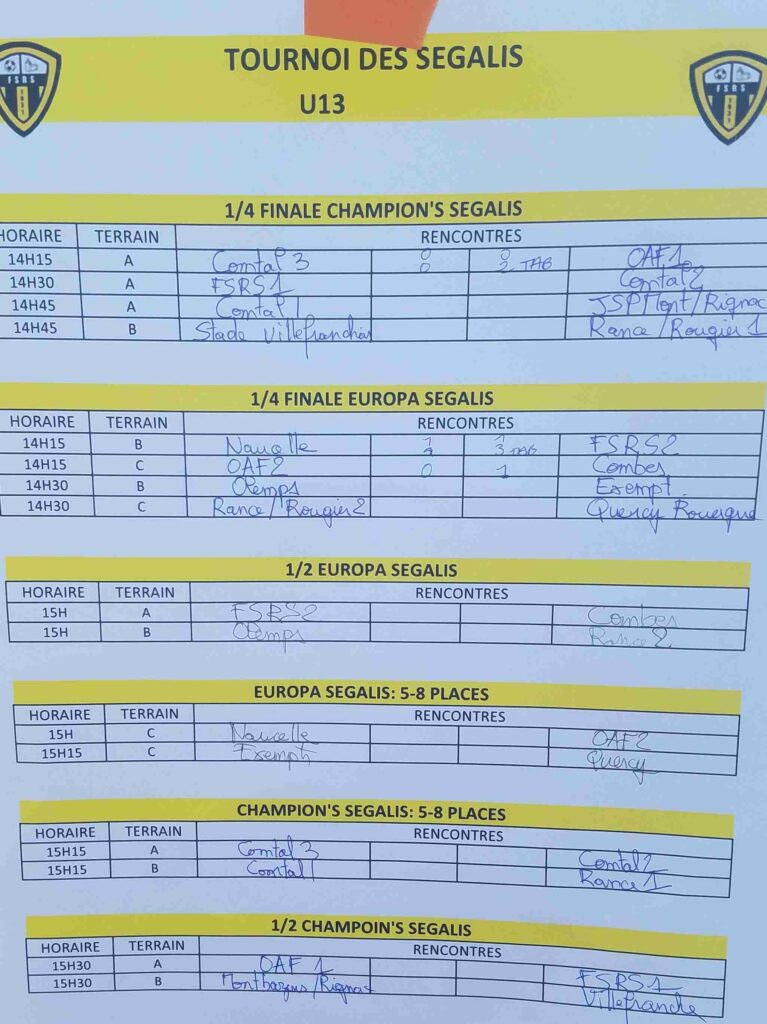 TOURNOI DES SEGALIS
U13
FSRS 1931
FSRS 1931
1/4 FINALE CHAMPION'S SEGALIS
HORAIRE TERRAIN RENCONTRES
14H15 A Comtal 3 0 0 OAF 1
0 2 TAB
14H30 A FSRS1 Comtal 2
14H45 A Comtal 1 JSPMont/Rignac
14H45 B Stade Villefranchois Rance/Rougier 1
1/4 FINALE EUROPA SEGALIS
HORAIRE TERRAIN RENCONTRES
14H15 B Naucelle 1 1 FSRS2
3 TAB
14H15 C OAF2 0 1 Combes
14H30 B Olemps Exempt
14H30 C Rance/Rougier 2 Quercy Rouergue
1/2 EUROPA SEGALIS
HORAIRE TERRAIN RENCONTRES
15H A FSRS2 Combes
15H B Olemps Rance 2
EUROPA SEGALIS: 5-8 PLACES
HORAIRE TERRAIN RENCONTRES
15H C Naucelle OAF2
15H15 C Exempt Quercy
CHAMPION'S SEGALIS: 5-8 PLACES
HORAIRE TERRAIN RENCONTRES
15H15 A Comtal 3 Comtal 2
15H15 B Comtal 1 Rance 1
1/2 CHAMPOIN'S SEGALIS
HORAIRE TERRAIN RENCONTRES
15H30 A OAF 1 FSRS1
15H30 B Montbazens/Rignac Villefranche